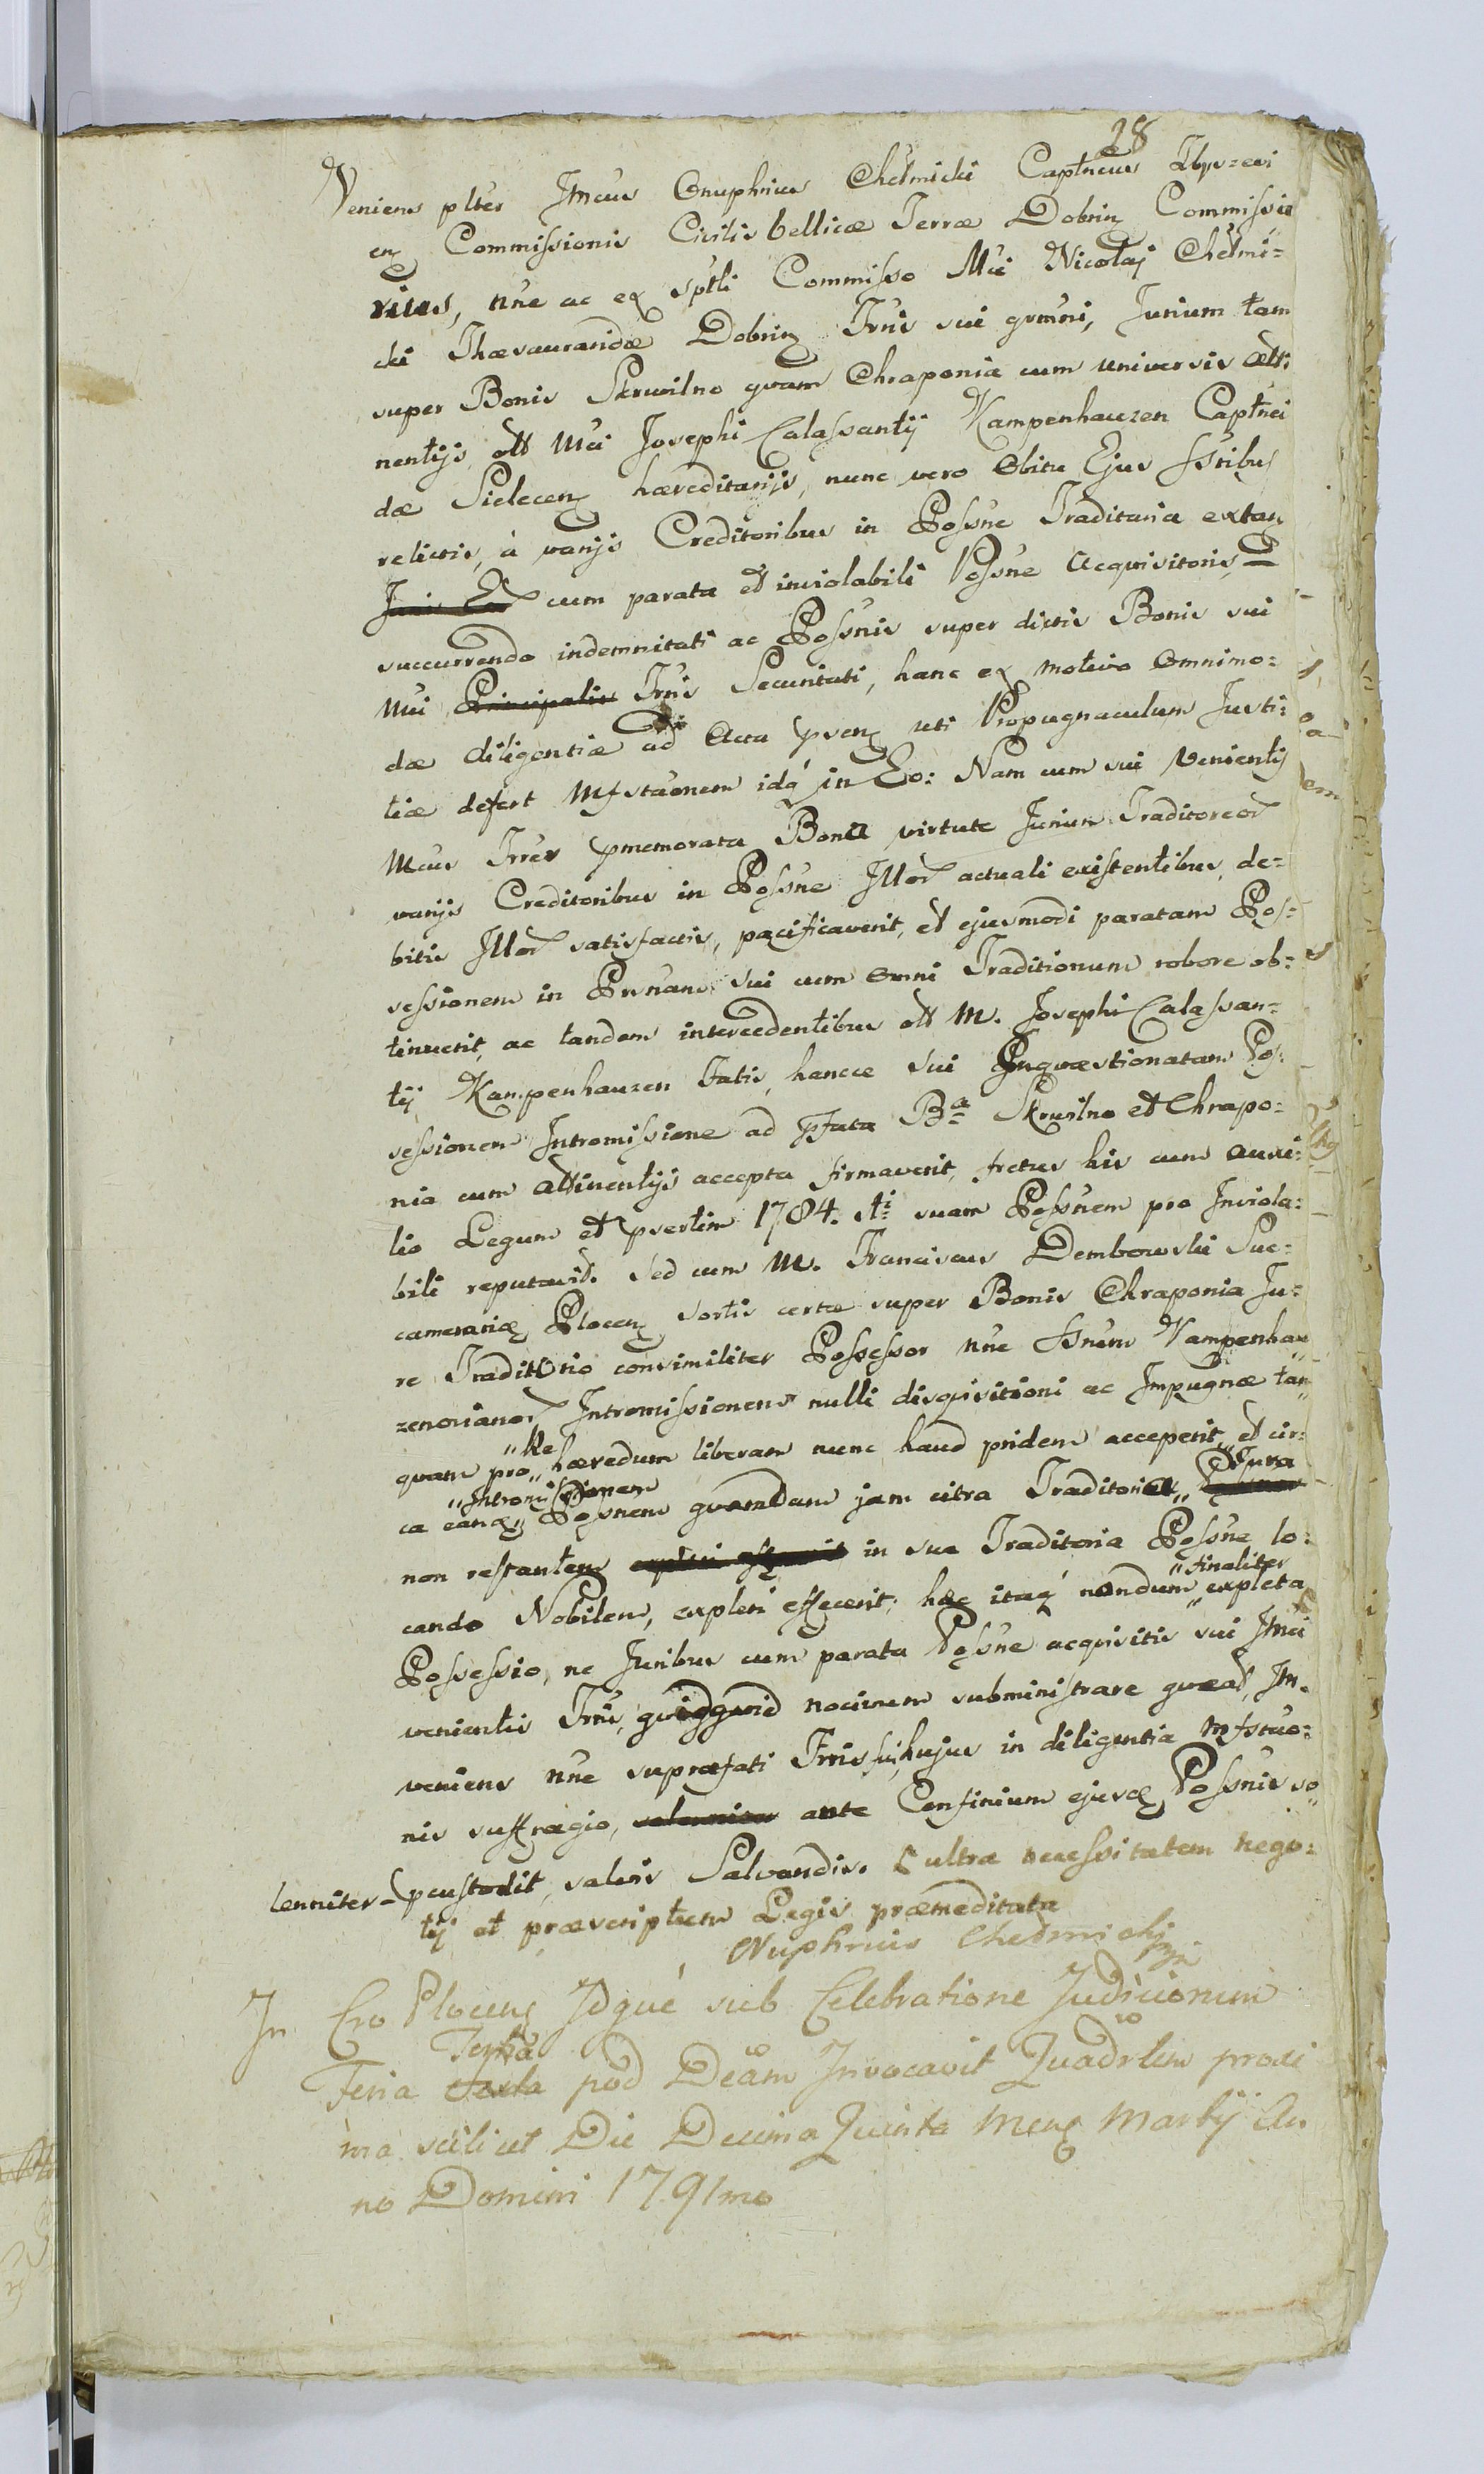 28
Veniens plter Jmcus Onuphrius Chełmicki Captneus
en Commissionis Civilis bellicæ Terræ Dobrin Commissa
rius, nne ac ex sptli Commisso Mci Nicolaj Chełmi=
cki Thæsauraridæ Dobrin Frnis sui grmni, Jurium tam
super Bonis Skrwilno quam Chraponia cum universis atti
nentijs, olt Mci Josephi Calassantij Kampenhauzen Captnei
dæ Sielecen hæreditarijs, nunc vero Obitu Ejus
relictis, à varijs Creditoribus in Possne Traditaria extan
cum parata et inviolabili Possne Acquisitoris,
succurrendo indemnitati ac Possnis super dictis Bonis sui
Mci Principalis Frnis Securitati, hanc ex motivo Omnimo=
dæ diligentiæ ad Acta psen uti Propugnaculum Justi=
tiæ defert Mfstaonem idq in Eo: Nam cum sui Venientis
Mcus Frrer pmemorata Bona virtute Jurium Traditoreor
varijs Creditoribus in Possne Illor actuali existentibus, de=
bitis Illor satisfactis, pacificaverit, et ejusmodi paratam Pos=
sessionem in Prsnam sui cum Omni Traditionum robore ob=
tinuerit, ac tandem intercedentibus olt M. Josephi Calassan=
tij Kampenhauzen Fatis, hancce sui Inquæstionatam Pos=
sessionem Intromissione ad pfata Ba Skrwilno et Chrapo=
nia cum Attinentijs accepta firmaverit, fretus his cum Auxi=
lio Legum et psertim 1784. Ai suam Possnem pro Inviola=
bili reputavit. Sed cum M. Franciscus Dembowski Suc=
camerariæ Plocen Sortis certæ super Bonis Chraponia Ju=
re Traditorio consimiliter Possessor nne Kampenhau
zenovianor Intromissionem nulli disquisitioni ac Impugnæ tan
Re
quam pro hæredum liberam nunc haud pridem acceperit, et cir=
Intromissionem
Jura
ca eand Possnem quamdam jam citra Traditoria
non restantem in sua Traditoria Possne lo=
finaliter
cando Nobilem, expleri effecerit; hæc itaq nondum expleta
Possessio, ne Juribus cum parata Possne acquisitis sui Jmci
venientis Frnis, quidquid nocivum subministrare queat, Jm.
veniens nne supræfati Frnis sui, hujus in diligentia Mfstao=
nis suffragio, ante Confinium ejusd Possnis so
lenniter pcustodit, salvis Salvandis. Et ultra necessitatem nego=
tij et præscriptum Legis præmeditata
Onuphrius Chełmicki
In Cro Plocen Idque sub Celebratione Judiciorum
Tertia
Feria Sexta pod Dcam Invocavit Quadrlem proxi
ma scilicet Die Decima Quinta Mens Martij An
no Domini 1791mo